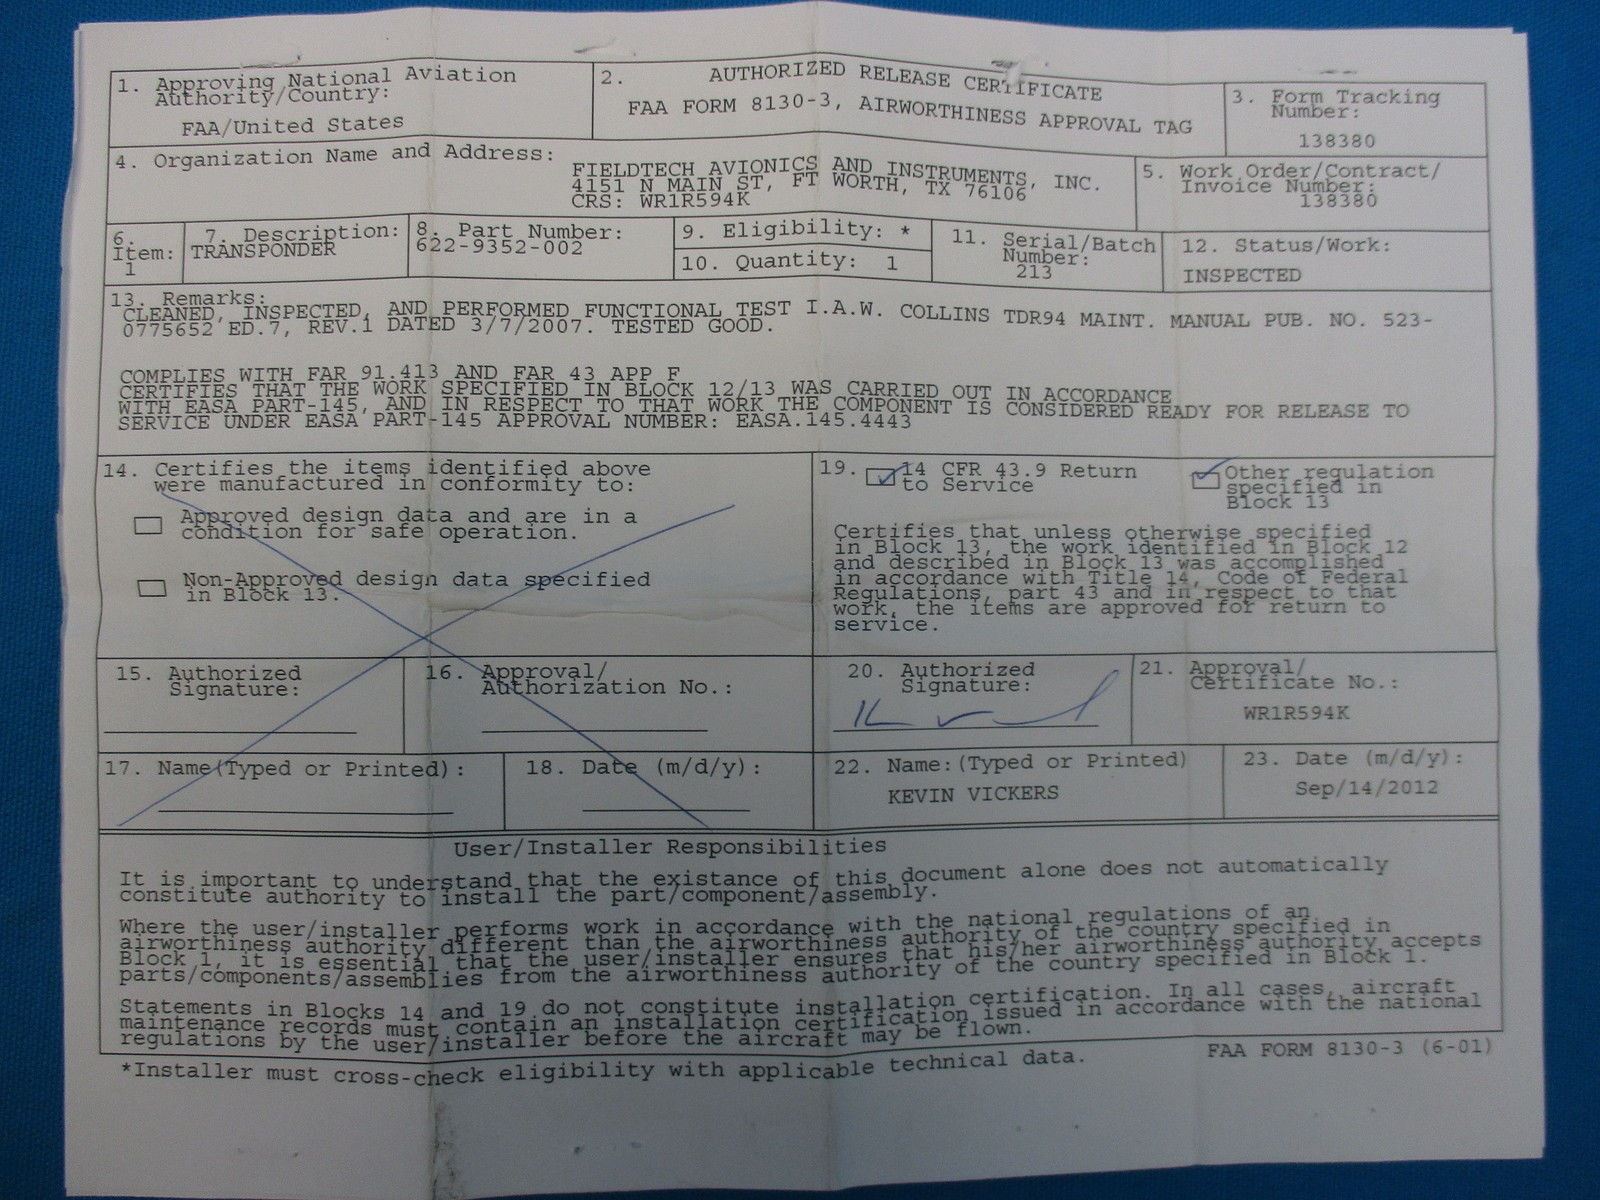 1. Approving National Aviation
Authority/Country:
FAA/United States
2. AUTHORIZED RELEASE CERTIFICATE
FAA FORM 8130-3, AIRWORTHINESS APPROVAL TAG
3. Form Tracking
Number:
138380
4. Organization Name and Address:
FIELDTECH AVIONICS AND INSTRUMENTS, INC.
4151 N MAIN ST, FT WORTH, TX 76106
CRS: WR1R594K
5. Work Order/Contract/
Invoice Number:
138380
6.
Item:
1
7. Description:
TRANSPONDER
8. Part Number:
622-9352-002
9. Eligibility: *
10. Quantity: 1
11. Serial/Batch
Number:
213
12. Status/Work:
INSPECTED
13. Remarks:
CLEANED, INSPECTED, AND PERFORMED FUNCTIONAL TEST I.A.W. COLLINS TDR94 MAINT. MANUAL PUB. NO. 523-
0775652 ED.7, REV.1 DATED 3/7/2007. TESTED GOOD.
COMPLIES WITH FAR 91.413 AND FAR 43 APP F
CERTIFIES THAT THE WORK SPECIFIED IN BLOCK 12/13 WAS CARRIED OUT IN ACCORDANCE
WITH EASA PART-145, AND IN RESPECT TO THAT WORK THE COMPONENT IS CONSIDERED READY FOR RELEASE TO
SERVICE UNDER EASA PART-145 APPROVAL NUMBER: EASA.145.4443
14. Certifies the items identified above
were manufactured in conformity to:
Approved design data and are in a
condition for safe operation.
Non-Approved design data specified
in Block 13.
19. 14 CFR 43.9 Return
to Service
Other regulation
specified in
Block 13
Certifies that unless otherwise specified
in Block 13, the work identified in Block 12
and described in Block 13 was accomplished
in accordance with Title 14, Code of Federal
Regulations, part 43 and in respect to that
work, the items are approved for return to
service.
15. Authorized
Signature:
16. Approval/
Authorization No.:
20. Authorized
Signature:
21. Approval/
Certificate No.:
WR1R594K
17. Name(Typed or Printed):
18. Date (m/d/y):
22. Name:(Typed or Printed)
KEVIN VICKERS
23. Date (m/d/y):
Sep/14/2012
User/Installer Responsibilities
It is important to understand that the existance of this document alone does not automatically
constitute authority to install the part/component/assembly.
Where the user/installer performs work in accordance with the national regulations of an
airworthiness authority different than the airworthiness authority of the country specified in
Block 1, it is essential that the user/installer ensures that his/her airworthiness authority accepts
parts/components/assemblies from the airworthiness authority of the country specified in Block 1.
Statements in Blocks 14 and 19 do not constitute installation certification. In all cases, aircraft
maintenance records must contain an installation certification issued in accordance with the national
regulations by the user/installer before the aircraft may be flown.
*Installer must cross-check eligibility with applicable technical data.
FAA FORM 8130-3 (6-01)